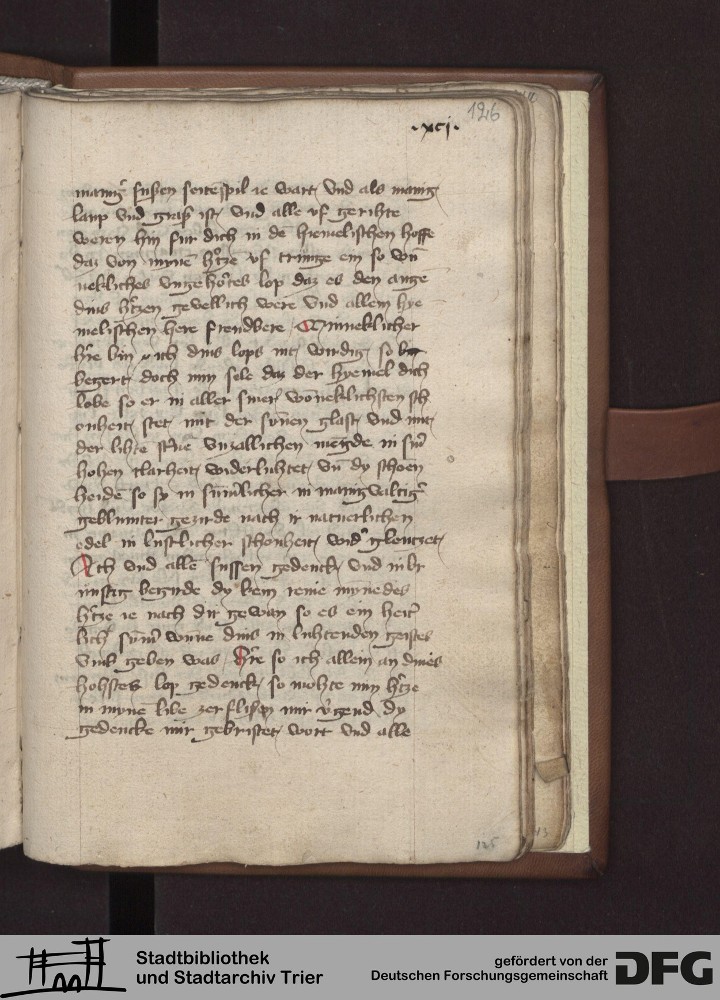 126
·xcj·
manig̕ sussen seitēspil ie wart / vnd als manig
laup vnd graß ist / vnd alle vf gerihte
weren hin fúr dich in dē hiemelischen hoffe
daz von minē h̕tze vf trúnge ein so wū
nekliches vngehôrtes lop daz es den auge
dins h̕tzen gevellich were vnd allem hye
melischen here frendbere / Minneklicher
h̕re bin ich dins lops nit wirdig / so
begert doch min sele daz der hyemel dich
lobe so er in aller siner wōneklichsten sch
onheit stet mit der sunnen glast / vnd mit
der lihte st̕nē vnzallichen megde in sin̕
hohen clarheit widerluhtet / vn̄ dy schoen
heide so sy in sum̄licher in manigvaltig̕
geblumter gezirde nach ir naturlichen
edel in lustlicher schonheit wid̕ glentzet /
Ach vnd alle sussen gedenck vnd inbr
unstig begirde dy kein reine minēdes
h̕tze ie nach dir gewan so es ein heit̕
lich̕ sum̕ wune dins in luhtenden geistes
vmb geben was / H̕re so ich allein an dines
hohstes lop gedenck / so mohte min h̕tze
in minē libe zerflißen mir v̕gend dy
gedencke mir gebristet / wort vnd alle
125
13
Stadtbibliothek
und Stadtarchiv Trier
gefördert von der
Deutschen Forschungsgemeinschaft
DFG